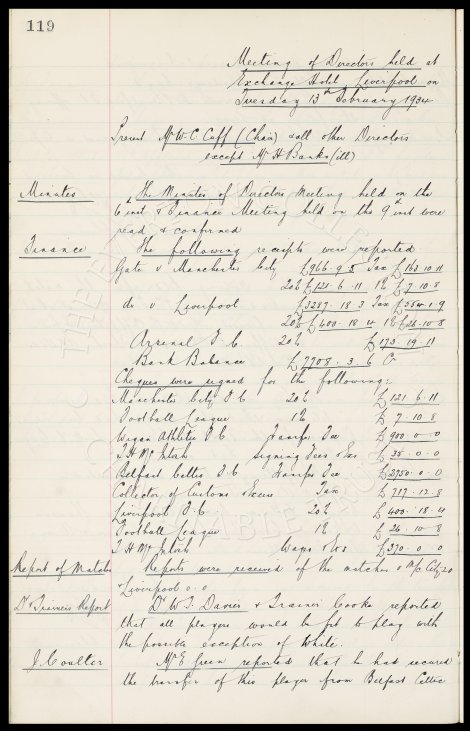 119
Meeting of Directors held at
Exchange Hotel Liverpool on
Tuesday 13th February 1934
Present Mr W.C. Cuff (Chair) & all other Directors
except Mr H Banks (ill)
Minutes The Minutes of Directors Meeting held on the
6 inst & Finance Meeting held on the 9th inst were
read & confirmed
Finance The following receipts were reported
Gate v Manchester City £966. 9. 5 Tax £163 10 11
20% £121. 6. 11 1% £7. 10. 8
do v Liverpool £3287. 18. 3 Tax £554. 1. 9
20% £400. 18. 4 1% £26. 10. 8
Arsenal F.C. 20% £173. 19. 11
Bank Balance £7708. 3. 6 Cr
Cheques were signed for the following:
Manchester City F.C 20% £121. 6. 11
Football League 1% £7. 10. 8
Wigan Athletic F.C Transfer Fee £900. 0. 0
T H McIntosh Signing Fees &c £35. 0. 0
Belfast Celtic F.C Transfer Fee £2750. 0. 0
Collector of Customs & Excise Tax £717. 12. 8
Liverpool F.C. 20% £400. 18. 4
Football League 1% £26. 10. 8
T H McIntosh Wages &c £370. 0. 0
Report of Matches Reports were received of the matches v M/c. City 2.0
v Liverpool 0.0
Dr & Trainers Report Dr W.J. Davies & Trainer Cooke reported
that all players would be fit to play with
the possible exception of White.
J. Coulter Mr E Green reported that he had secured
the transfer of this player from Belfast Celtic